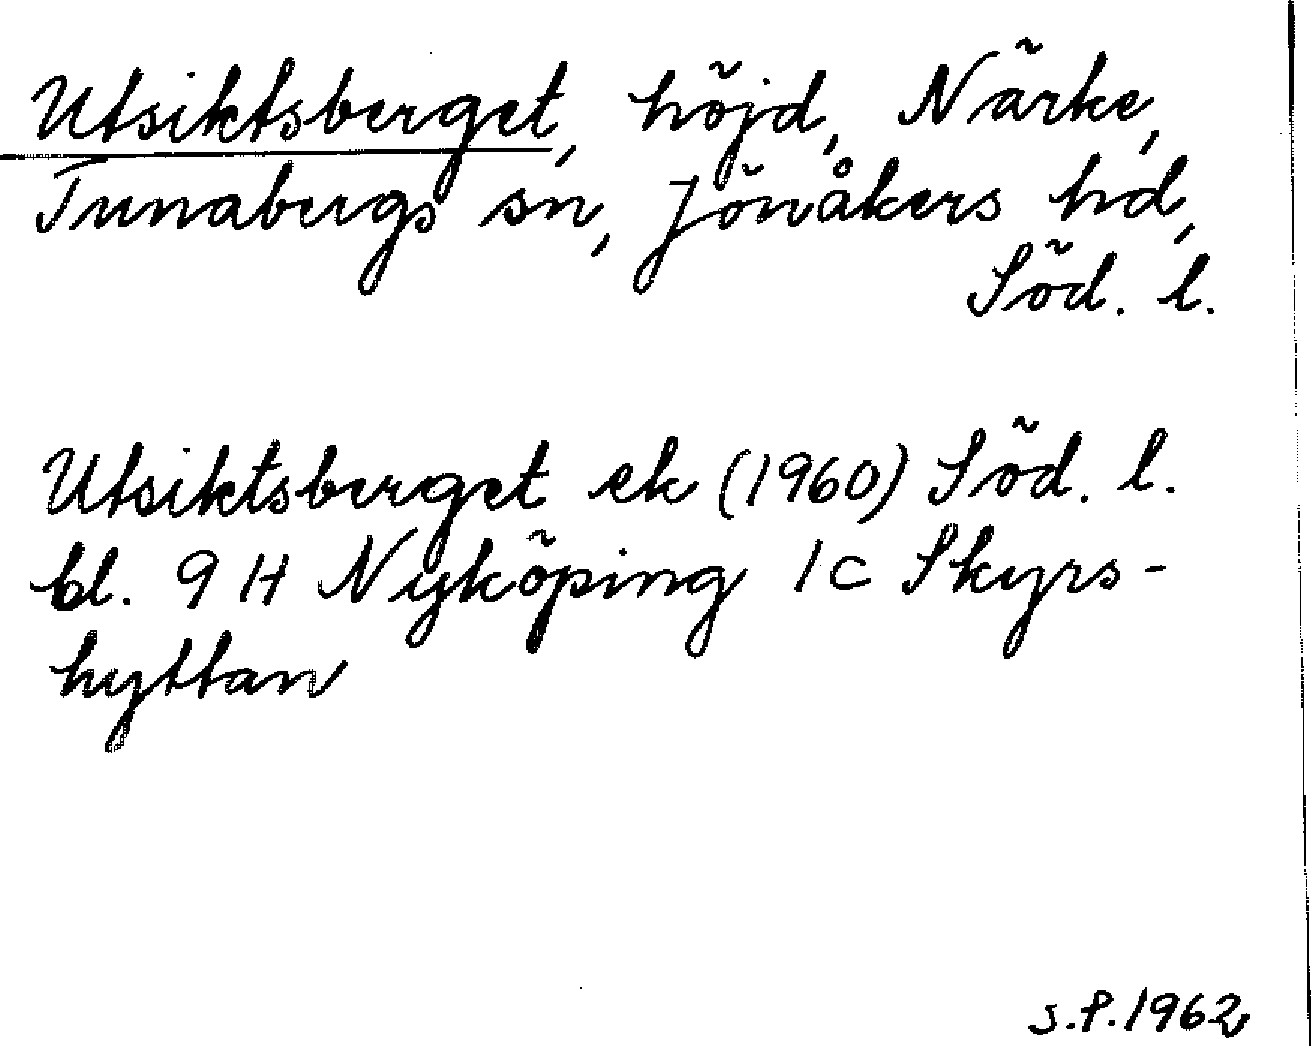 Utsiktsberget, höjd, Närke,
Tunabergs sn, Jönåkers hd,
Söd. l.
Utsiktsberget ek (1960) Söd. l.
bl. 9 H Nyköping 1c Skyrs-
hyttan
S.P. 1962